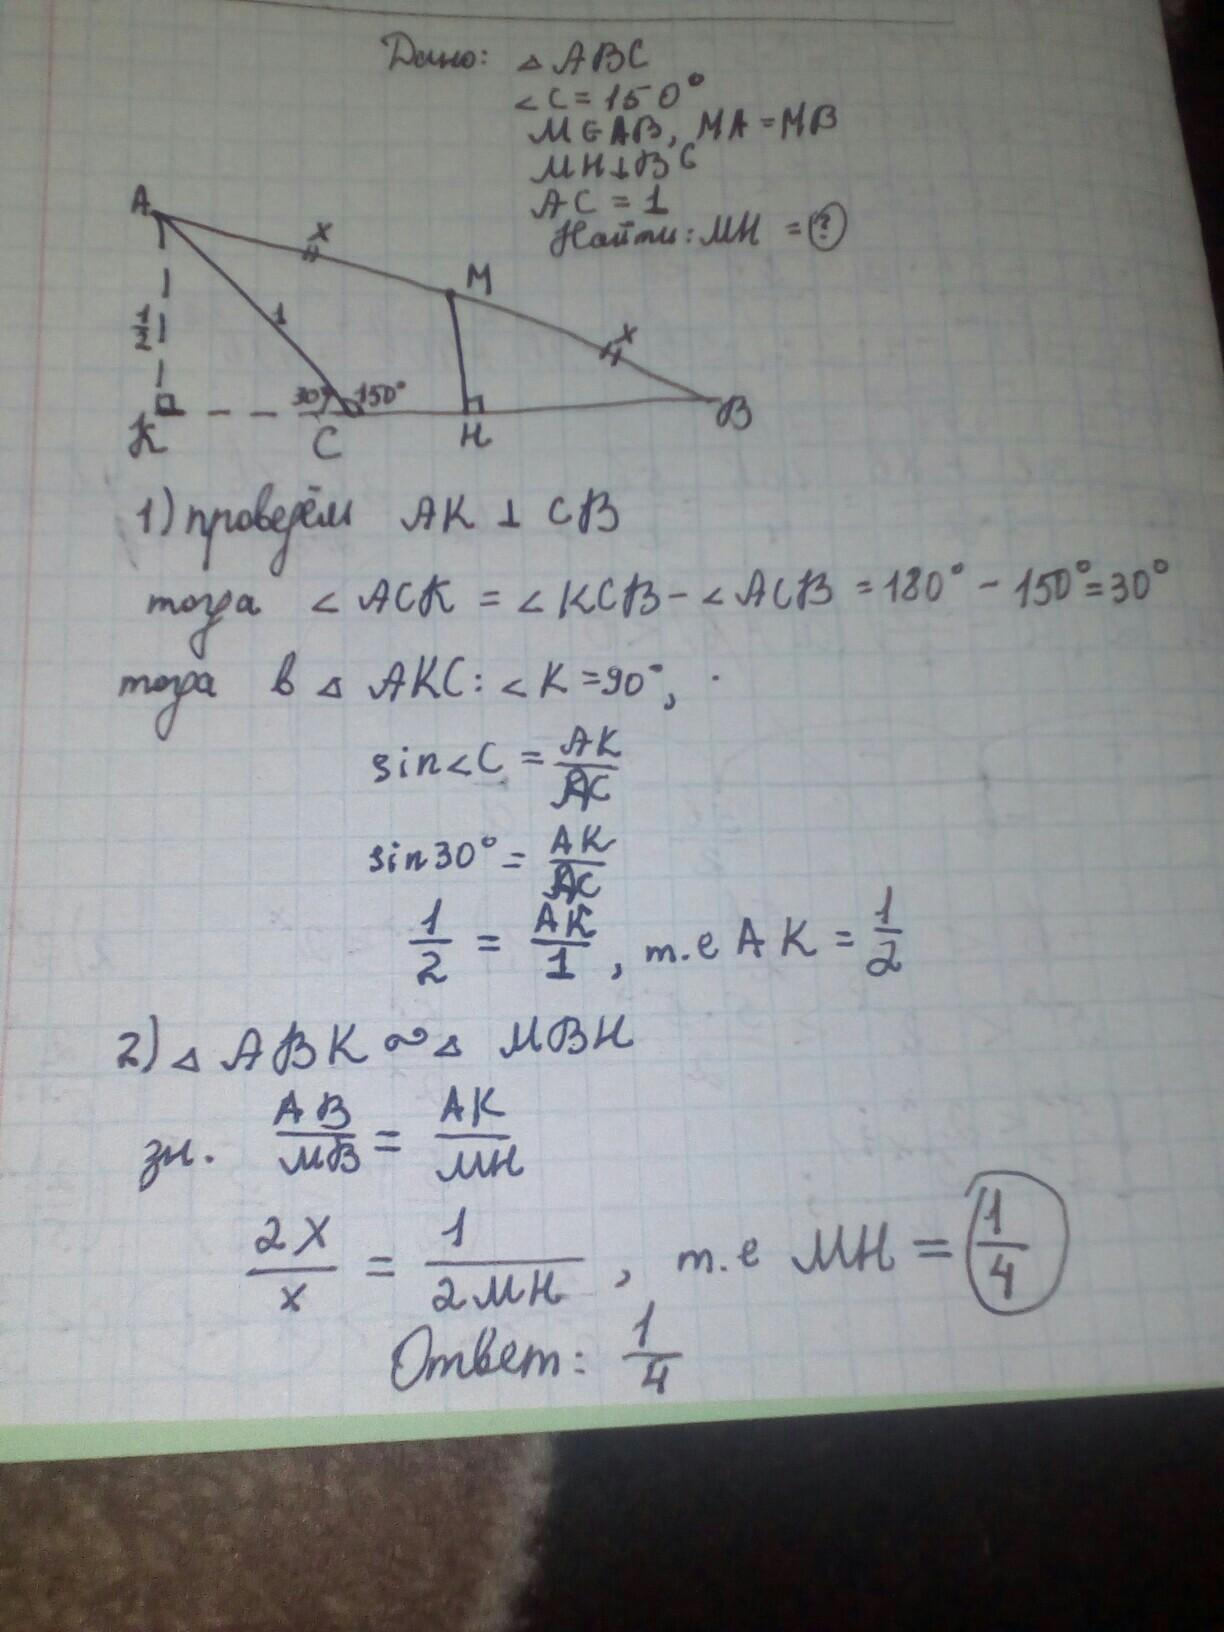 Дано: △ ABC
∠C = 150°
M ∈ AB, MA = MB
MH ⊥ BC
AC = 1
Найти: MH = ?
A
x
M
1/2
1
x
30°
150°
K
C
H
B
1) проведём AK ⊥ CB
тогда ∠ ACK = ∠ KCB - ∠ ACB = 180° - 150° = 30°
тогда в △ AKC: ∠ K = 90°,
sin∠C = AK/AC
sin30° = AK/AC
1/2 = AK/1, т.е AK = 1/2
2) △ ABK ∾ △ MBH
зн. AB/MB = AK/MH
2x/x = 1/2MH, т.е MH = 1/4
Ответ: 1/4